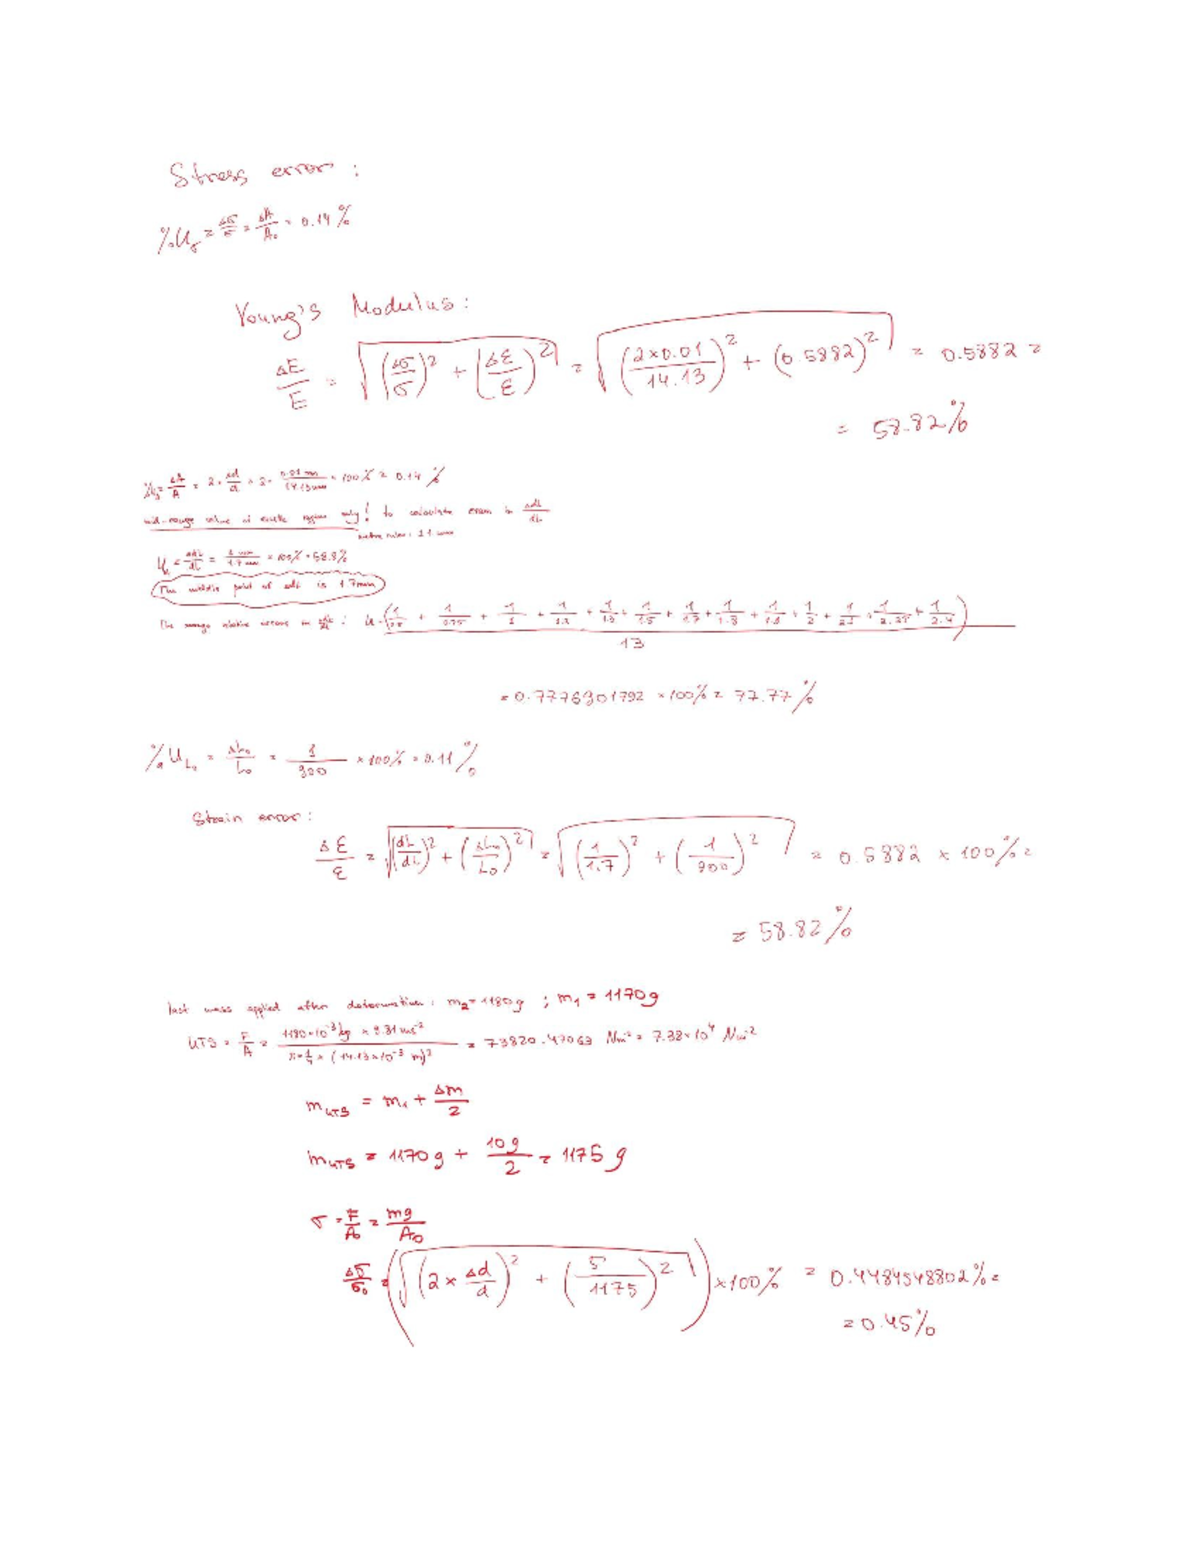 Stress error :
%Uσ = Δσ/σ = ΔA/A₀ = 0.14%
Young's Modulus :
ΔE/E = √((Δσ/σ)² + (Δε/ε)²) = √((2×0.01/14.13)² + (0.5882)²) = 0.5882 =
= 58.82%
ΔA/A = 2 × Δd/d = 2 × 0.01 mm/14.13 mm × 100% = 0.14 %
mid-range value of elastic region only! to calculate error in ΔdL/dL
= ΔdL/dL = 1 mm/1.7 mm × 100% = 58.8%
The middle point of ΔdL is 1.7mm
The average relative errors in ΔdL/dL :
13
= 0.7776901792 × 100% = 77.77 %
% U_L₀ = ΔL₀/L₀ = 1/900 × 100% = 0.11 %
Strain error :
Δε/ε = √((dL/dL)² + (ΔL₀/L₀)²) = √((1/1.7)² + (1/900)²) = 0.5882 × 100% =
= 58.82 %
last mass applied after deformation : m₂ = 1180g ; m₁ = 1170g
UTS = F/A = 1180×10⁻³kg × 9.81 ms⁻² / π×¼×(14.13×10⁻³ m)² = 73820.47063 Nm⁻² = 7.38×10⁴ Nm⁻²
m_UTS = m₁ + Δm/2
m_UTS = 1170g + 10g/2 = 1175 g
σ = F/A₀ = mg/A₀
Δσ/σ₀ = (√((2 × Δd/d)² + (5/1175)²)) × 100% = 0.4484548802% =
= 0.45%